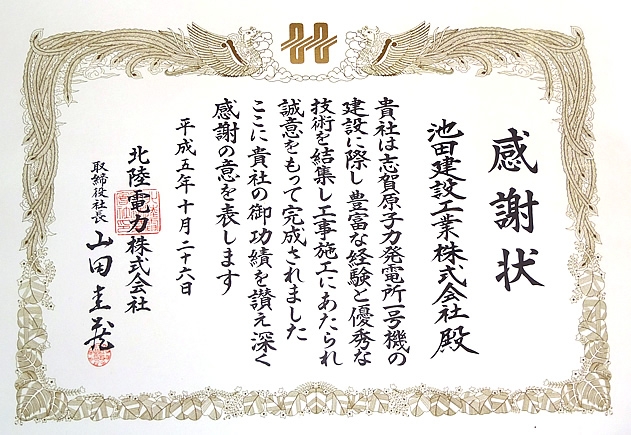 感謝状
池田建設工業株式会社殿
貴社は志賀原子力発電所一号機の
建設に際し豊富な経験と優秀な
技術を結集し工事施工にあたられ
誠意をもって完成されました
ここに貴社の御功績を讃え深く
感謝の意を表します
平成五年十月二十六日
北陸電力株式会社
取締役社長 山田圭藏